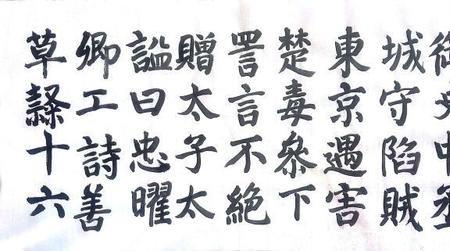 御史中丞
城守陷賊
東京遇害
楚毒叅下
詈言不絕
贈太子太
謚曰忠曜
卿工詩善
草隸十六